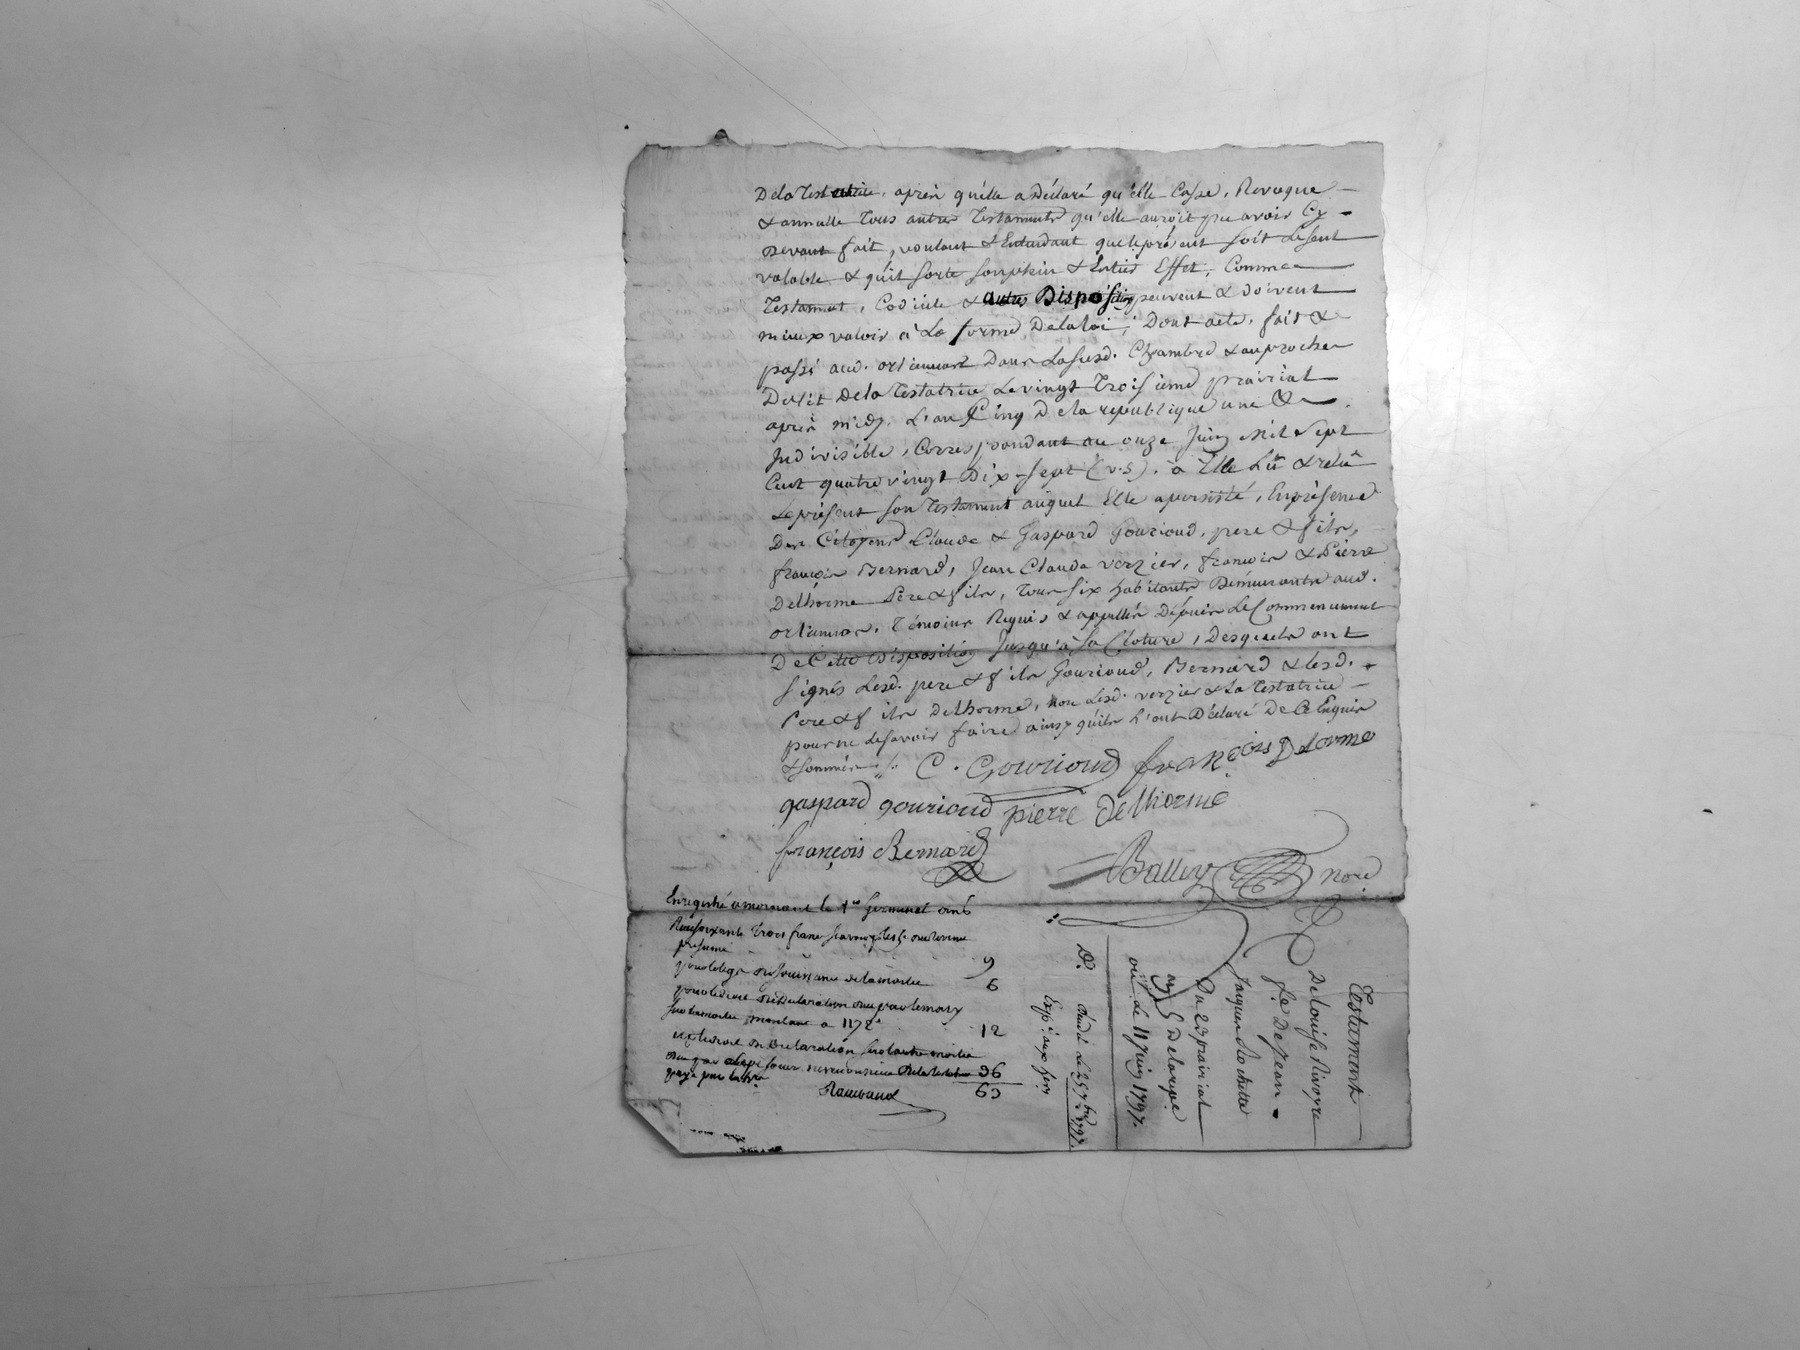 Dela Testatrice, après qu'elle a Déclaré qu'elle Casse, Revoque
& annulle Tous autres Testaments qu'elle auroit pu avoir Cy-
Devant fait, voulant & Entendant que le présent soit le seul
valable & qu'il sorte son plein & Entier Effet, Comme
Testament, Codicile & autres Disposition peuvent & doivent
mieux valoir à La forme Dela loi; Dont acte, fait &
passé aud. orlienas Dans La susd. Chambre & au proche
Du lit Dela Testatrice Le vingt Troisième prairial
après midy, L'an Cinq De la republique une &
Indivisible, Correspondant au onze Juin mil sept
Cent quatre vingt Dix-sept (v.s). à Elle Lû & relû
Le présent son Testament auquel Elle a persisté, En présence
Des Citoyens Claude & Gaspard Gourioud, pere & fils,
françois Bernard, Jean Claude verzier, françois & Pierre
Delhorme Pere & fils, Tous six habitants Demeurants aud.
orlienas, Témoins Requis & appellés Depuis Le Commencement
De Cette Disposition Jusqu'à sa Cloture, Desquels ont
signés Lesd. pere & fils Gourioud, Bernard & lesd.
Pere & fils Delhorme, non Led. verzier & La Testatrice
pour ne le savoir faire ainsy qu'ils l'ont Déclaré De Ce Enquis
& sommés ./.
C. Gourioud françois Delorme
gaspard gourioud pierre delhorme
françois Bernard
Balley nore
Enregistré a mornant le 1er Germinal an 6
Reçu soixante trois francs savoir
présumé 9
jouissance de la moitié 6
pour le droit de declaration
montant a 1178 12
declaration sur l'autre moitié
36
63
Testament
De Louise Rivoyre
fe. De Jean
Jacques Rochette
Du 23 prairial
an 5 De la rep.e
ou Le 11 Juin 1797.
Exp.